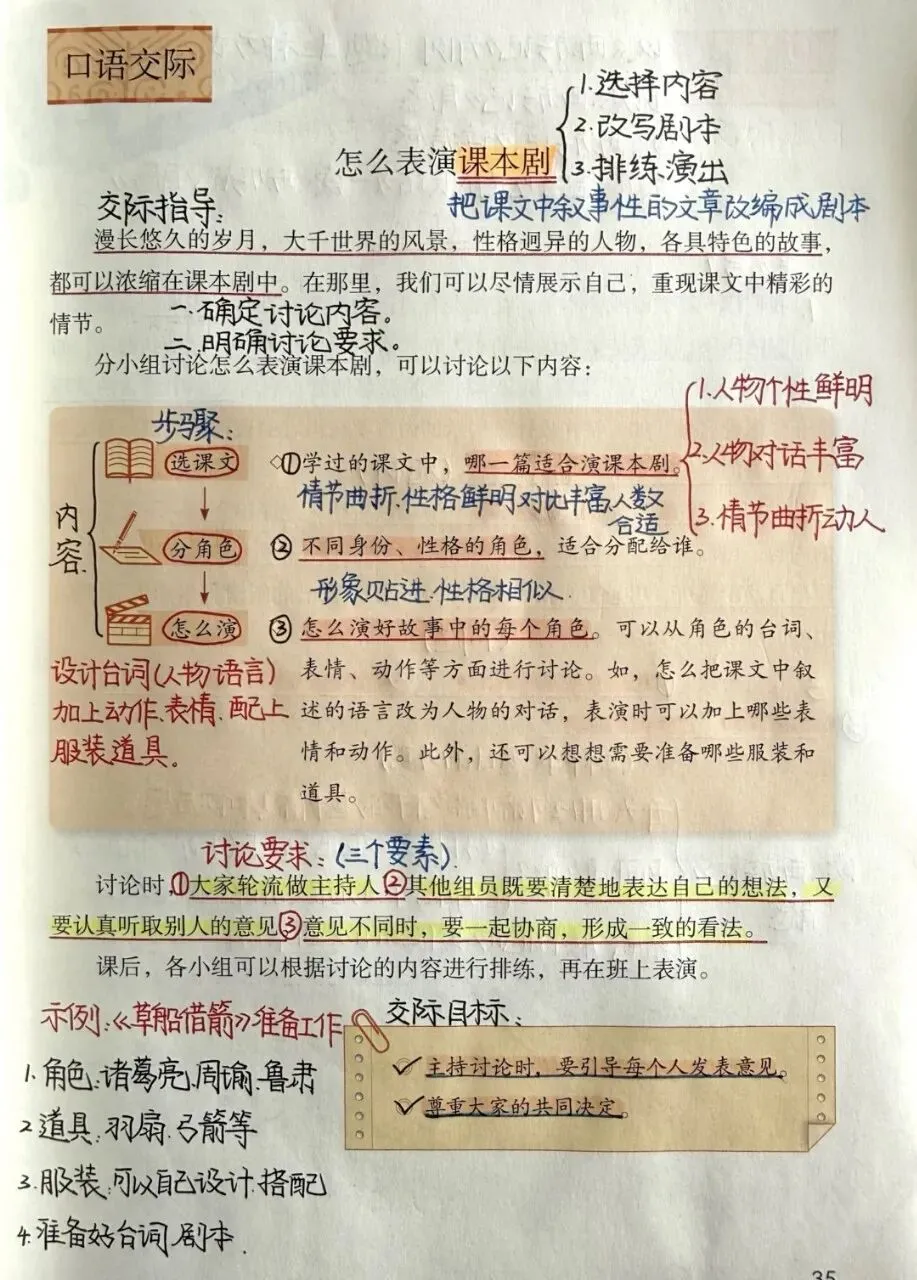 口语交际
1.选择内容
2.改写剧本
怎么表演课本剧
3.排练.演出
交际指导:
把课文中叙事性的文章改编成剧本
漫长悠久的岁月，大千世界的风景，性格迥异的人物，各具特色的故事，
都可以浓缩在课本剧中。在那里，我们可以尽情展示自己，重现课文中精彩的
情节。
一.确定讨论内容。
二.明确讨论要求。
分小组讨论怎么表演课本剧，可以讨论以下内容：
1.人物个性鲜明
2.人物对话丰富
3.情节曲折动人
步骤:
内容.
选课文
◇①学过的课文中，哪一篇适合演课本剧。
情节曲折.性格鲜明.对比丰富.人数
合适
分角色
② 不同身份、性格的角色，适合分配给谁。
形象贴进.性格相似.
怎么演
③ 怎么演好故事中的每个角色。可以从角色的台词、
表情、动作等方面进行讨论。如，怎么把课文中叙
述的语言改为人物的对话，表演时可以加上哪些表
情和动作。此外，还可以想想需要准备哪些服装和
道具。
设计台词(人物语言)
加上动作.表情.配上
服装道具.
讨论要求:(三个要素).
讨论时,①大家轮流做主持人②其他组员既要清楚地表达自己的想法，又
要认真听取别人的意见③意见不同时，要一起协商，形成一致的看法。
课后，各小组可以根据讨论的内容进行排练，再在班上表演。
示例:《草船借箭》准备工作
1.角色:诸葛亮.周瑜.鲁肃
2道具:羽扇.弓箭等
3.服装.可以自己设计.搭配
4.准备好台词.剧本.
交际目标:
✓主持讨论时，要引导每个人发表意见。
✓尊重大家的共同决定。
35